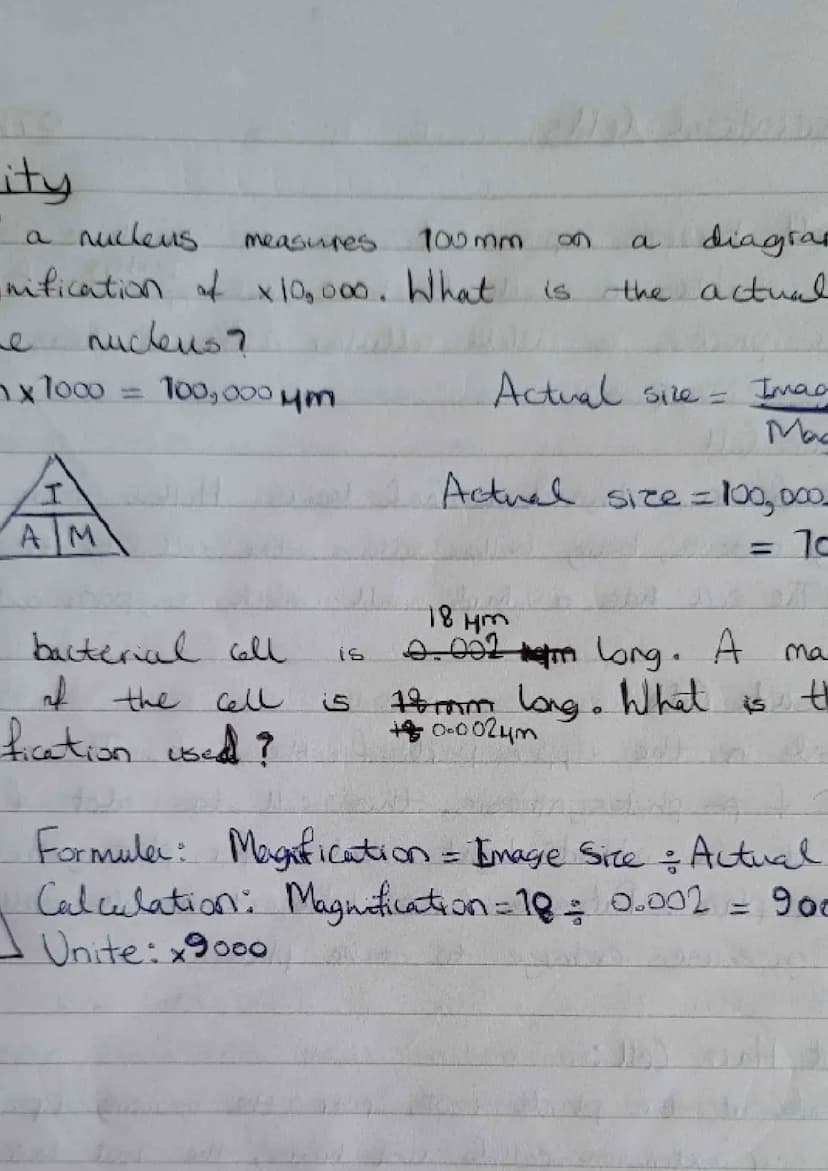 ity
a nucleus measures 100mm on a diagram
nification of x10,000. What is the actual
e nucleus?
x1000 = 100,000 μm Actual size = Imag
Mag
I
A M
Actual size = 100,000
= 10
18 μm
bacterial cell is 0.002 long. A ma
of the cell is 18mm long. What is th
18 0.002μm
fication used?
Formula: Magnification = Image Size ÷ Actual
Calculation: Magnification = 18 ÷ 0.002 = 900
Unite: x9000